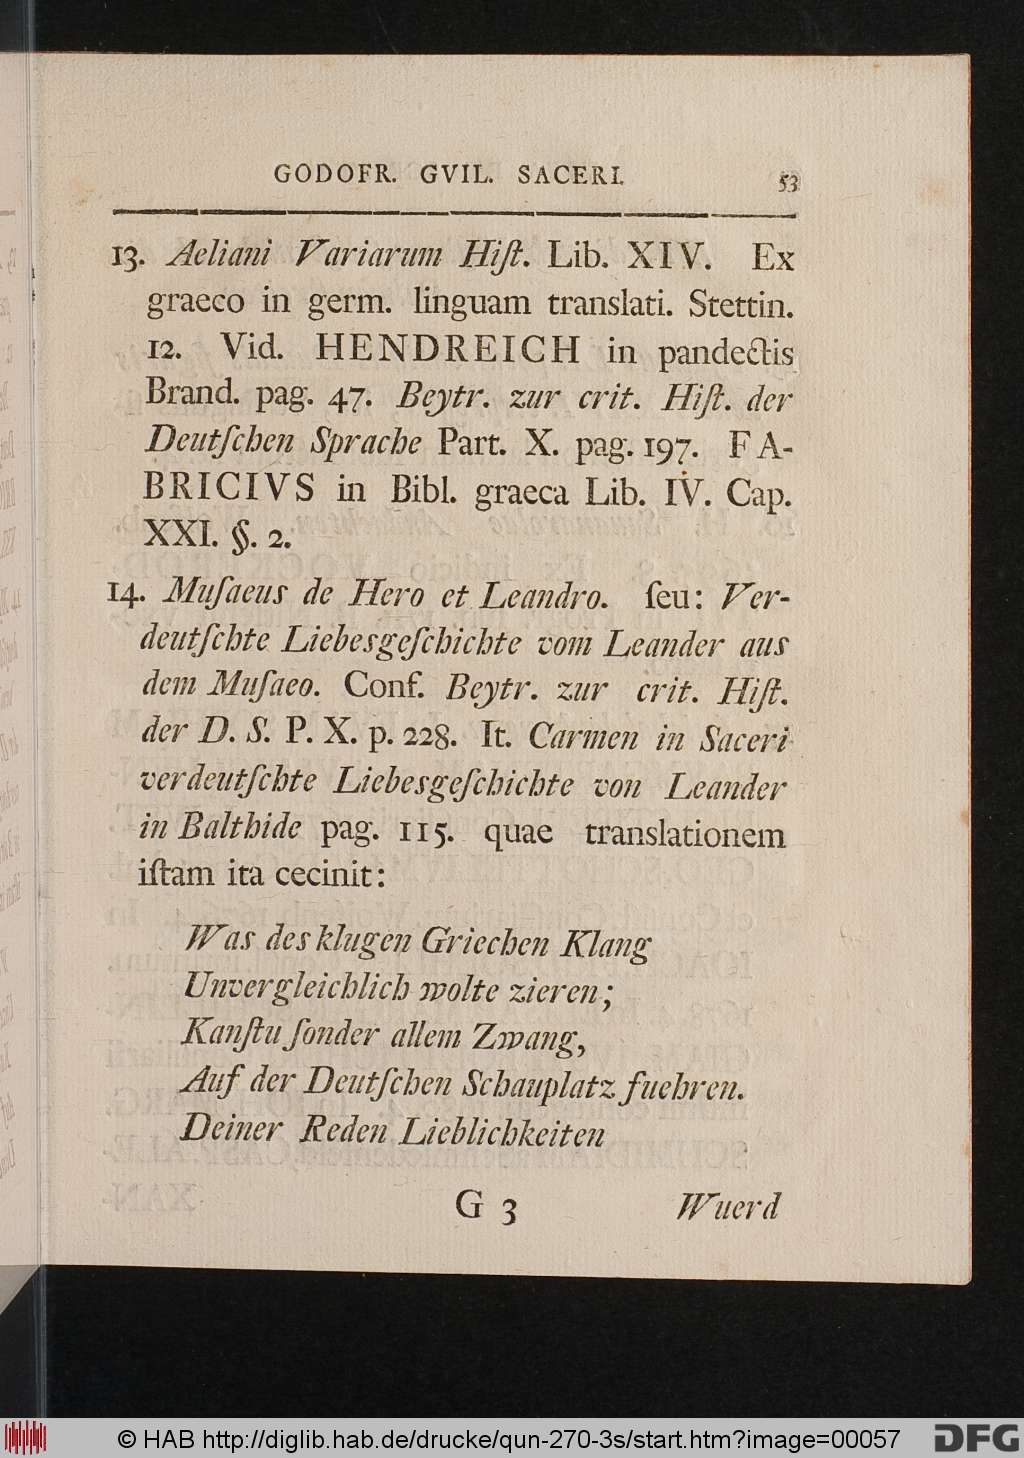 GODOFR. GVIL. SACERI. 53
13. Aeliani Variarum Hiſt. Lib. XIV. Ex
graeco in germ. linguam translati. Stettin.
12. Vid. HENDREICH in pandectis
Brand. pag. 47. Beytr. zur crit. Hiſt. der
Deutſchen Sprache Part. X. pag. 197. FA-
BRICIVS in Bibl. graeca Lib. IV. Cap.
XXI. §. 2.
14. Muſaeus de Hero et Leandro. ſeu: Ver-
deutſchte Liebesgeſchichte vom Leander aus
dem Muſaeo. Conf. Beytr. zur crit. Hiſt.
der D. S. P. X. p. 228. It. Carmen in Saceri
verdeutſchte Liebesgeſchichte von Leander
in Balthide pag. 115. quae translationem
iſtam ita cecinit:
Was des klugen Griechen Klang
Unvergleichlich wolte zieren;
Kanſtu ſonder allem Zwang,
Auf der Deutſchen Schauplatz fuehren.
Deiner Reden Lieblichkeiten
G 3 Wuerd
© HAB http://diglib.hab.de/drucke/qun-270-3s/start.htm?image=00057 DFG